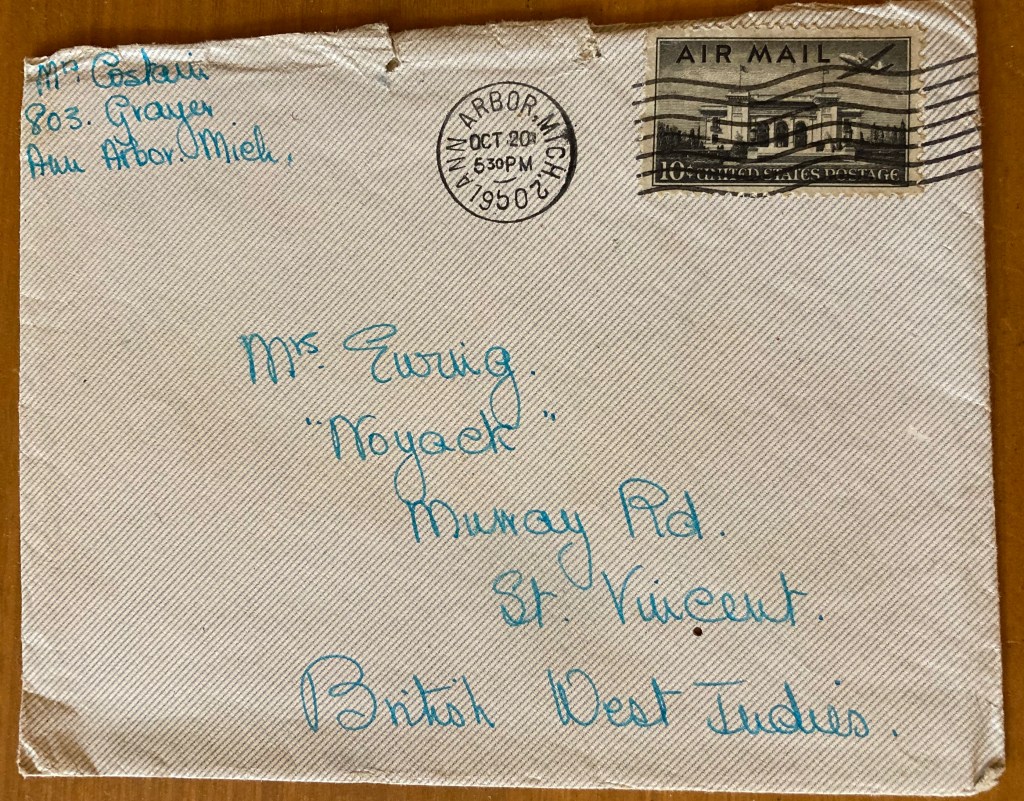 Mrs Costain
803. Grayer
Ann Arbor. Mich.
ANN ARBOR, MICH. 2
OCT 20
5 30 PM
1950
AIR MAIL
10¢ UNITED STATES POSTAGE
Mrs. Ewing.
"Noyack"
Murray Rd.
St. Vincent.
British West Indies.